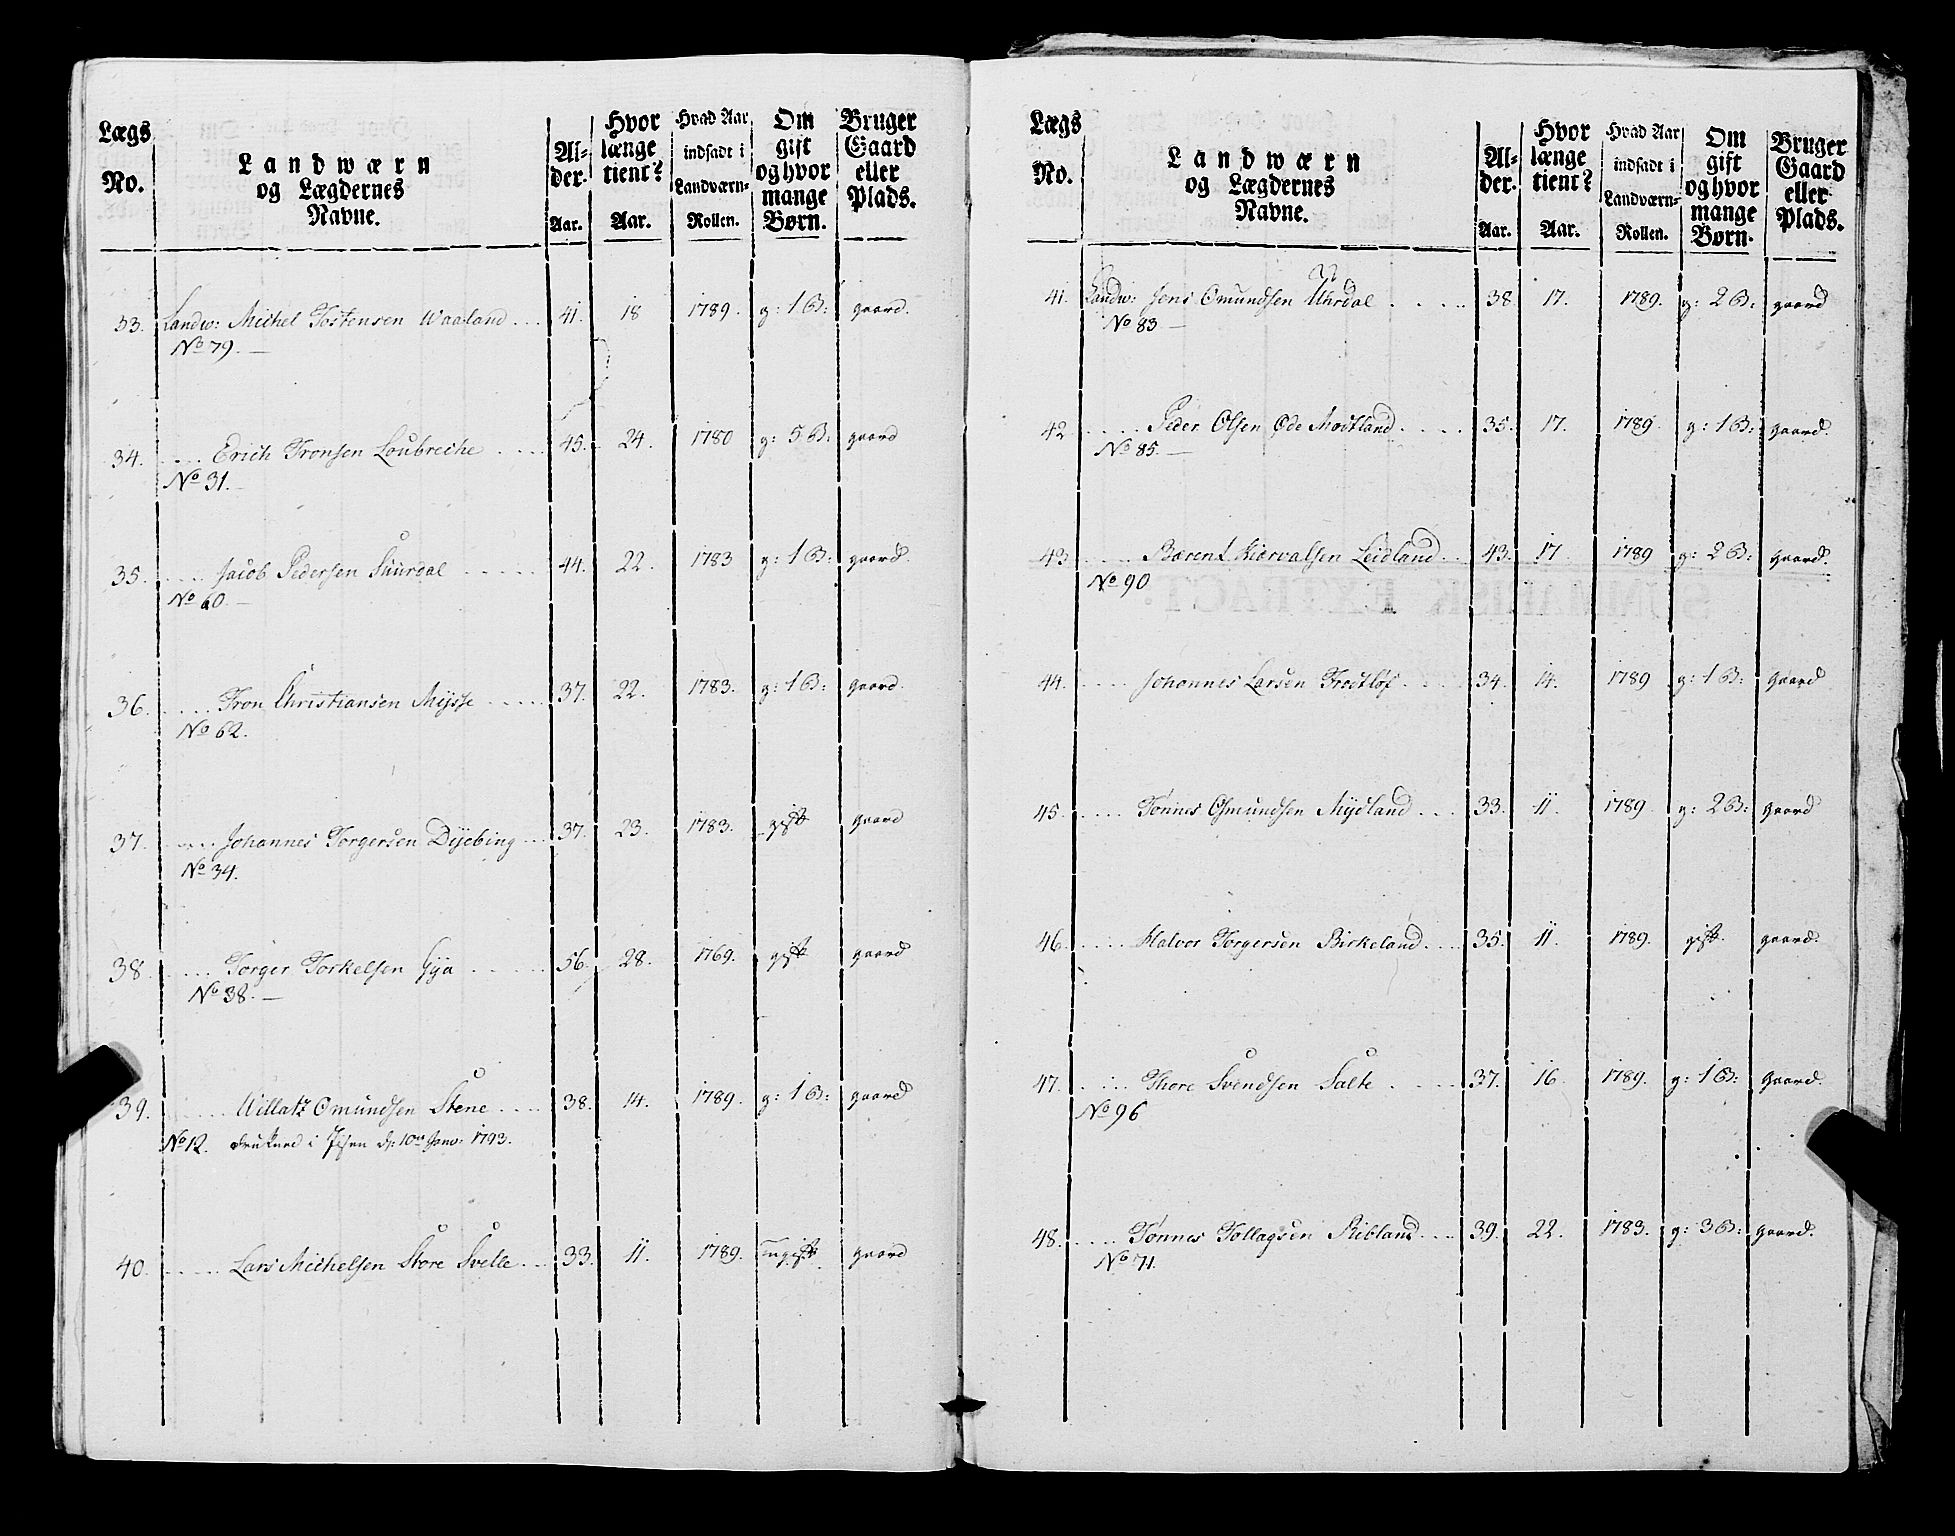 Lægs No. | Landwærn og Lægdernes Navne. | Al-der. Aar. | Hvor længe tient? Aar. | Hvad Aar indsadt i Landværn-Rollen. | Om gift og hvor mange Børn. | Bruger Gaard eller Plads.
33. Landw: Michel Tostensen Waaland . . . 41. 18 1789. g: 1 B: gaard.
No 79. —
34. . . . . Erich Tronsen Loubreche . . . . 45. 24. 1780 g: 5 B: gaard
No 31. —
35. . . . . Jacob Pedersen Skurdal . . . . . 44. 22. 1783 g: 1 B: gaard.
No 60. —
36. . . . . . Tron Christiansen Mysse . . . . . 37. 22. 1783. g: 1 B: gaard.
No 62.
37. . . . . Johannes Torgersen Dyebing . . . 37. 23. 1783. gift gaard
No 34.
38. . . . . . Torger Torkelsen Gya . . . . . 56. 28. 1769. gift gaard
No 38. —
39. . . . . . Willatz Omundsen Stene . . . . 38. 14. 1789. g: 1 B: gaard
No 12. druknet i d: 10de Janv: 1793.
40. . . . . . Lars Michelsen Store Svelle . . . 33. 11. 1789. ungift gaard
Lægs No. | Landwærn og Lægdernes Navne. | Al-der. Aar. | Hvor længe tient? Aar. | Hvad Aar indsadt i Landværn-Rollen. | Om gift og hvor mange Børn. | Bruger Gaard eller Plads.
41. Landw: Jens Omundsen Uhrdal . . . . . 38 17. 1789. g: 2 B: gaard
No 83 —
42 . . . . . Peder Olsen Øde Modland . . . . . 35. 17. 1789. g: 1 B: gaard.
No 85. —
43 . . . . . Bærent Kiærvalsen Leidland . . 43. 17 1789 g: 2 B: gaard.
No 90
44. . . . . . Johannes Larsen . . . . . 34. 14. 1789 g: 1 B: gaard
45. . . . . . Tønnes Osmundsen Mydland . . . 33. 11. 1789. g: 2 B: gaard
46 . . . . . Halvor Torgersen Birkeland . . . 35. 11. 1789. gift. gaard.
47. . . . . Thore Svendsen Salte . . . . . 37. 16 1789. g: 1 B: gaard.
No 96
48. . . . . Tønnes Tollagsen Ribland . . . 39. 22. 1783. g: 3 B: gaard.
No 71.